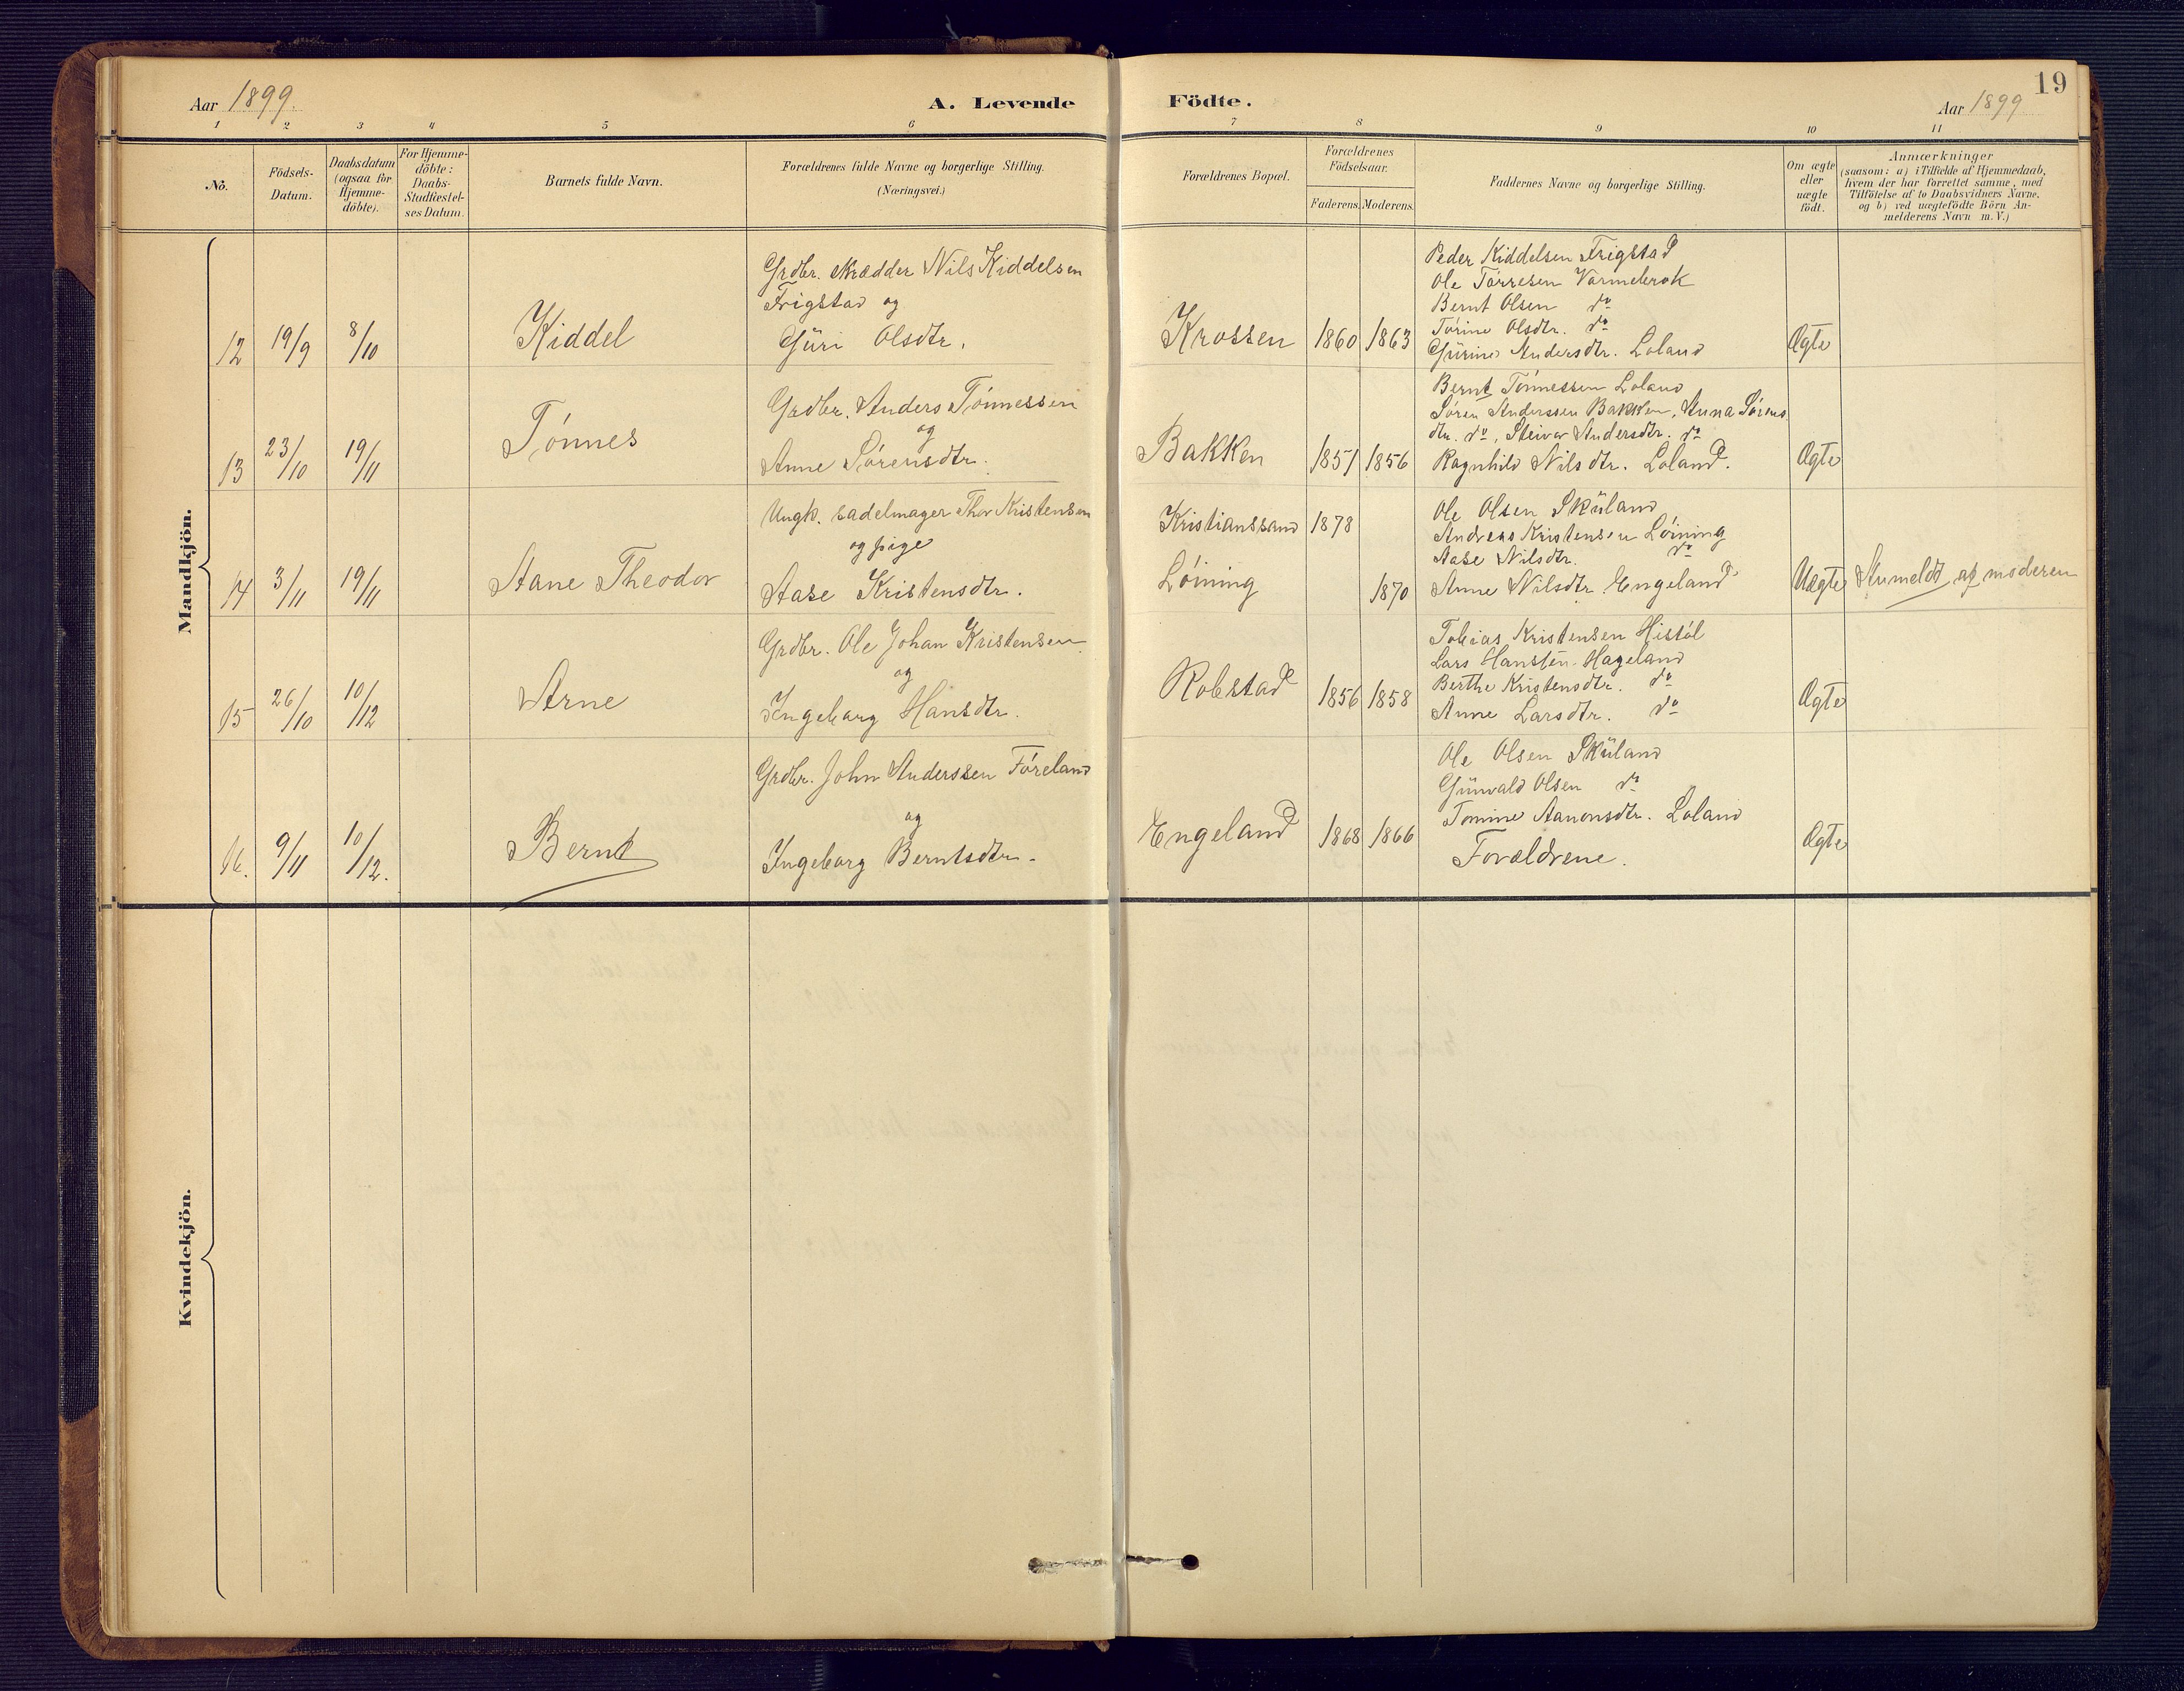 19
Aar 1899.
A. Levende Födte.
Aar 1899
1 2 3 4 5 6 7 8 9 10 11
No.
Födsels-Datum.
Daabsdatum (ogsaa for Hjemme-döbte).
For Hjemme-döbte: Daabs-Stadfæstel-ses Datum.
Barnets fulde Navn.
Forældrenes fulde Navne og borgerlige Stilling.
(Næringsvei.)
Forældrenes Bopæl.
Forældrenes Födselsaar.
Faderens. Moderens.
Faddernes Navne og borgerlige Stilling.
Om ægte eller uægte födt.
Anmærkninger
(saasom: a) i Tilfælde af Hjemmedaab,
hvem der har forrettet samme, med
Tilföielse af to Daabsvidners Navne,
og b) ved uægtefödte Börn An-
melderens Navn m. V.)
Mandkjön.
12 19/9 8/10 Kiddel
Grdbr. skrædder Nils Kiddelsen
Frigstad og
Güri Olsdtr.
Krossen 1860 1863
Peder Kiddelsen Frigstad
Ole Tørresen Varmebrok
Bernt Olsen do
Torine Olsdtr. do
Gürine Andersdtr. Loland
Ægte
13 23/10 19/11 Tönnes
Grdbr. Anders Tönnessen
og
Anne Sörensdtr.
Bakken 1851 1856
Bernt Tönnessen Loland
Sören Anderssen Bakken, Anna Sörens
dtr. do, Steinar Andersdtr. do
Ragnhild Nilsdtr. Loland.
Ægte
14 3/11 19/11 Aane Theodor
Ungk. sadelmager Thor Kristensen
og pige
Aase Kristensdtr.
Kristianssand 1878
Löining 1870
Ole Olsen Sküland
Andreas Kristensen Löining
Aase Nilsdtr. do
Anne Nilsdtr. Engeland
Uægte
Anmeldt af moderen
15 26/10 10/12 Arne
Grdbr. Ole Johan Kristensen
og
Ingeborg Hansdtr.
Robstad 1856 1858
Tobias Kristensen Histöl
Lars Hanssen Hageland
Berthe Kristensdtr. do
Anne Larsdtr. do
Ægte
16. 9/11 10/12. Bernt
Grdbr. John Anderssen Föreland
og
Ingeborg Berntsdtr.
Engeland 1868 1866
Ole Olsen Sküland
Günvald Olsen do
Tomine Aanonsdtr. Loland
Forældrene.
Ægte
Kvindekjön.